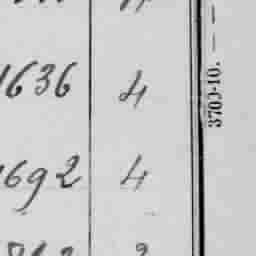 1636 4
1692 4
3703-10.